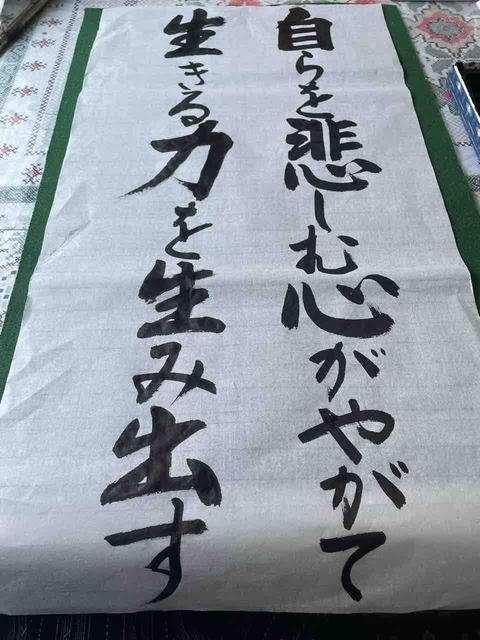 自らを悲しむ心がやがて
生きる力を生み出す